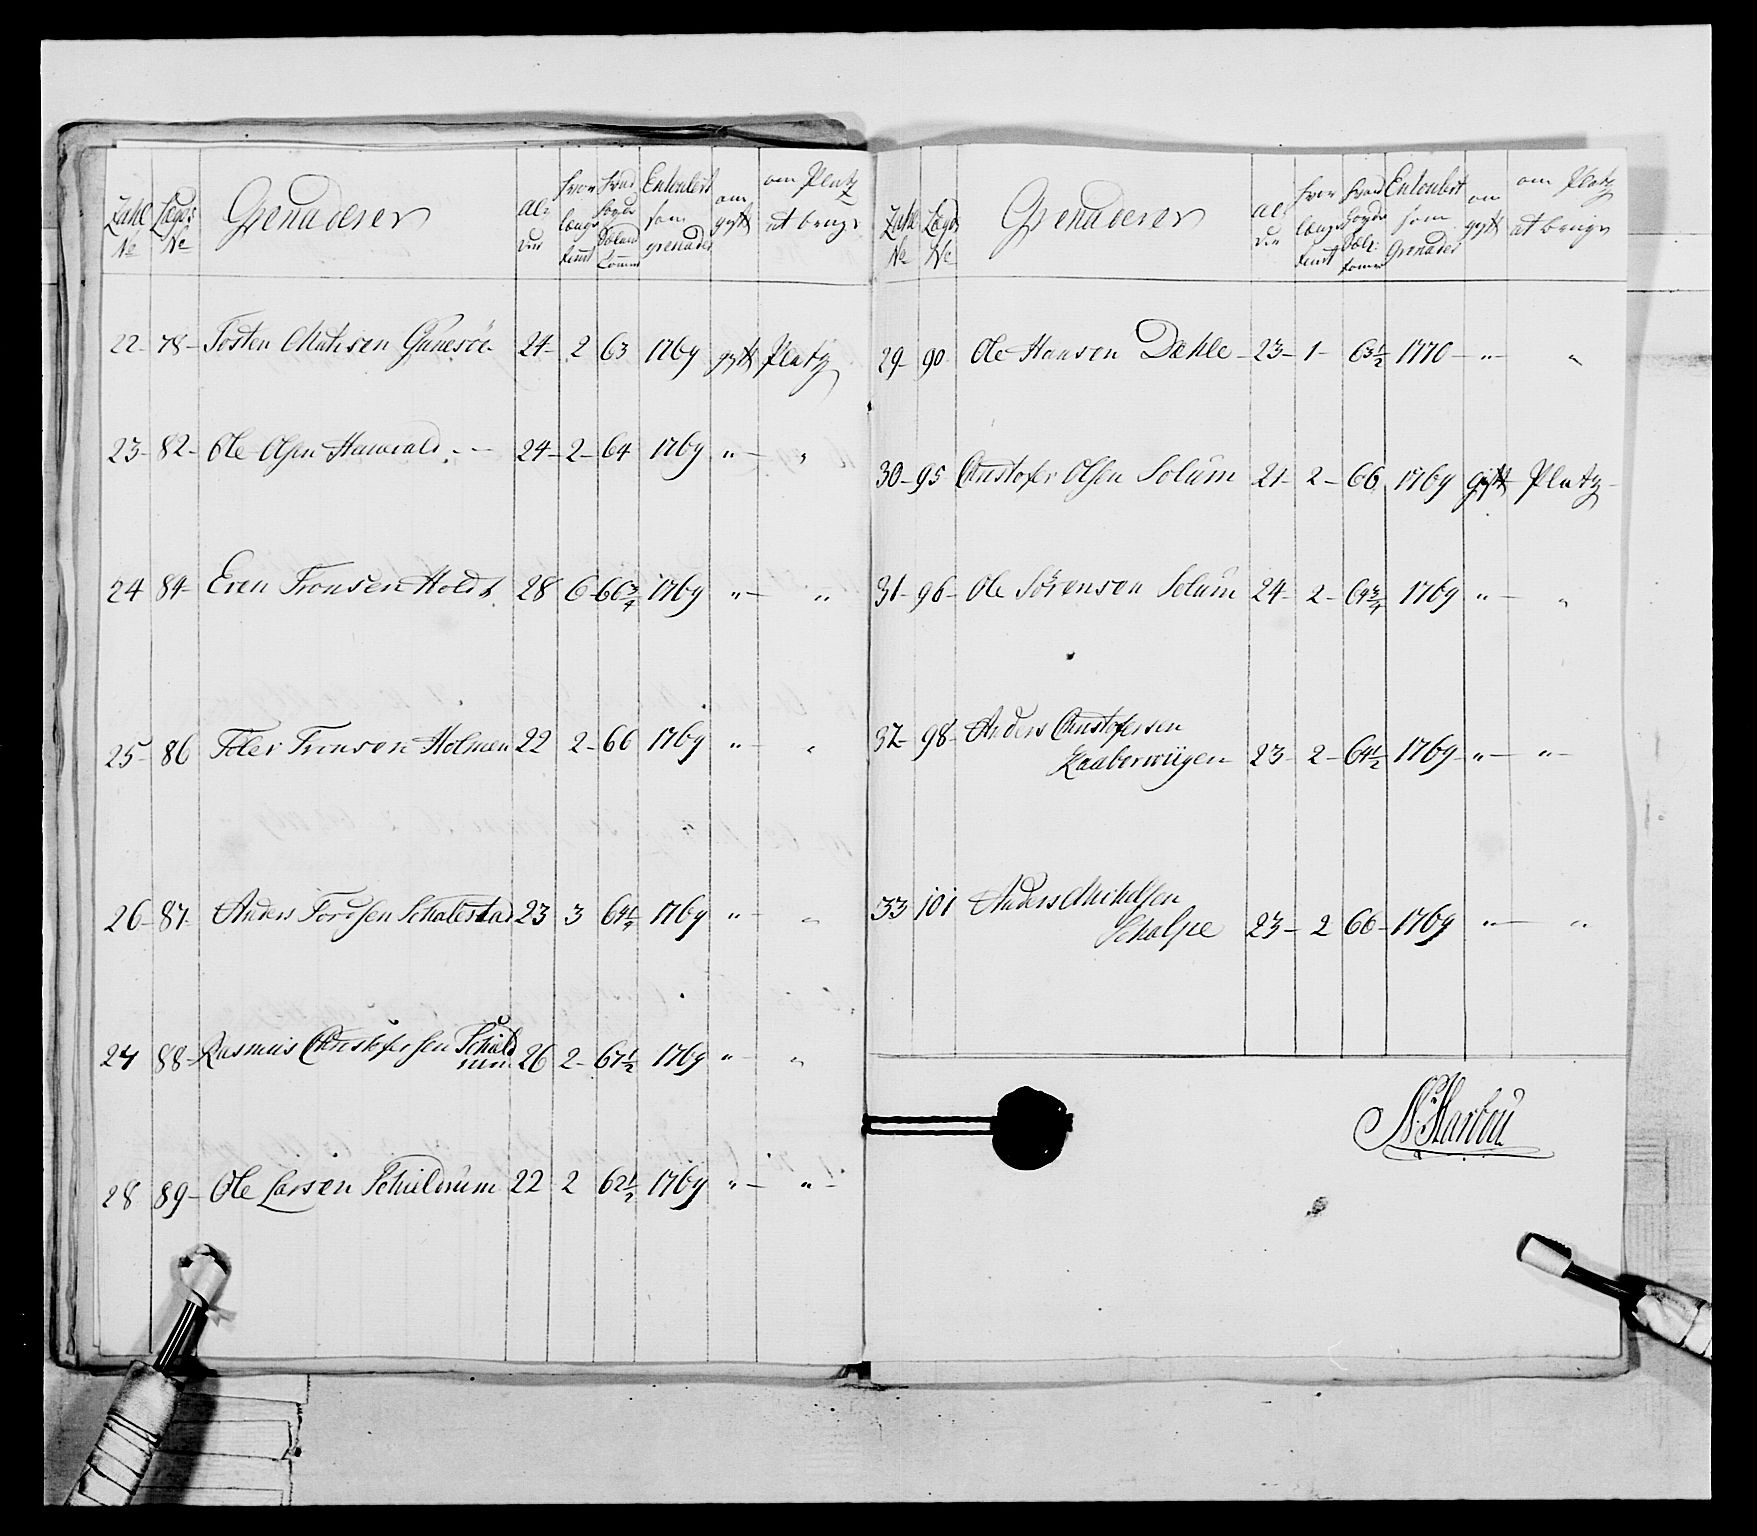 Zahl No Lægs No Grenaderer Al- der hvor længe tient hvad høyde Enroulert som grenader om gyft om Platz at bruge
22- 78- Tosten Gunesöe 24- 2 63 1769 gyft Platz
23- 82- Ole Olsen 24- 2- 64 1769 " — "
24 84- Even Tronsen Holdt 28 6- 66 3/4 1769 " — "
25- 86 Tronson Holmen 22 2- 66 1769 " — "
26- 87- Anders Tordsen Schalestad 23 3 64 1/4 1769 " — "
27 88- Rasmus Christofersen Schield
rum 26 2- 67 1/2 1769 " — "
28 89- Ole Larsen Schieldrum 22 2 62 1/2 1769 " — "
Zahl No Lægs No Grenaderer Al- der hvor længe tient hvad høyde Enroulert som Grenader om gyft om Platz at bruge
29- 90- Ole Hansen Dæhle- 23- 1- 63 1/2 1770 — " — "
30- 95 Christofer Olsen Solum 21- 2- 66 1769 gyft Platz-
31- 96- Ole Sörensen Solum 24- 2- 64 3/4 1769 " — "
32- 98- Anders Christofersen
Kaaberwiigen 23- 2- 64 1/2 1769- " — " —
33 101 Anders Michelsen
Schalpe 23- 2 66- 1769 " — "
N. Harbou